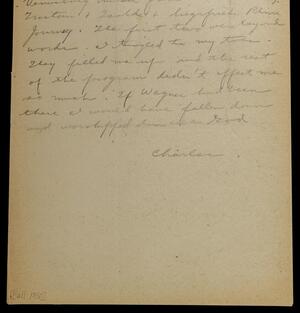 Tristan & Isolde & Siegfried's Rhine
Journey. The first two were beyond
words. I tingled to my toes.
They filled me up and the rest
of the program didn't affect me
as much. If Wagner had been
there I would have fallen down
and worshipped him as a God
Charles.